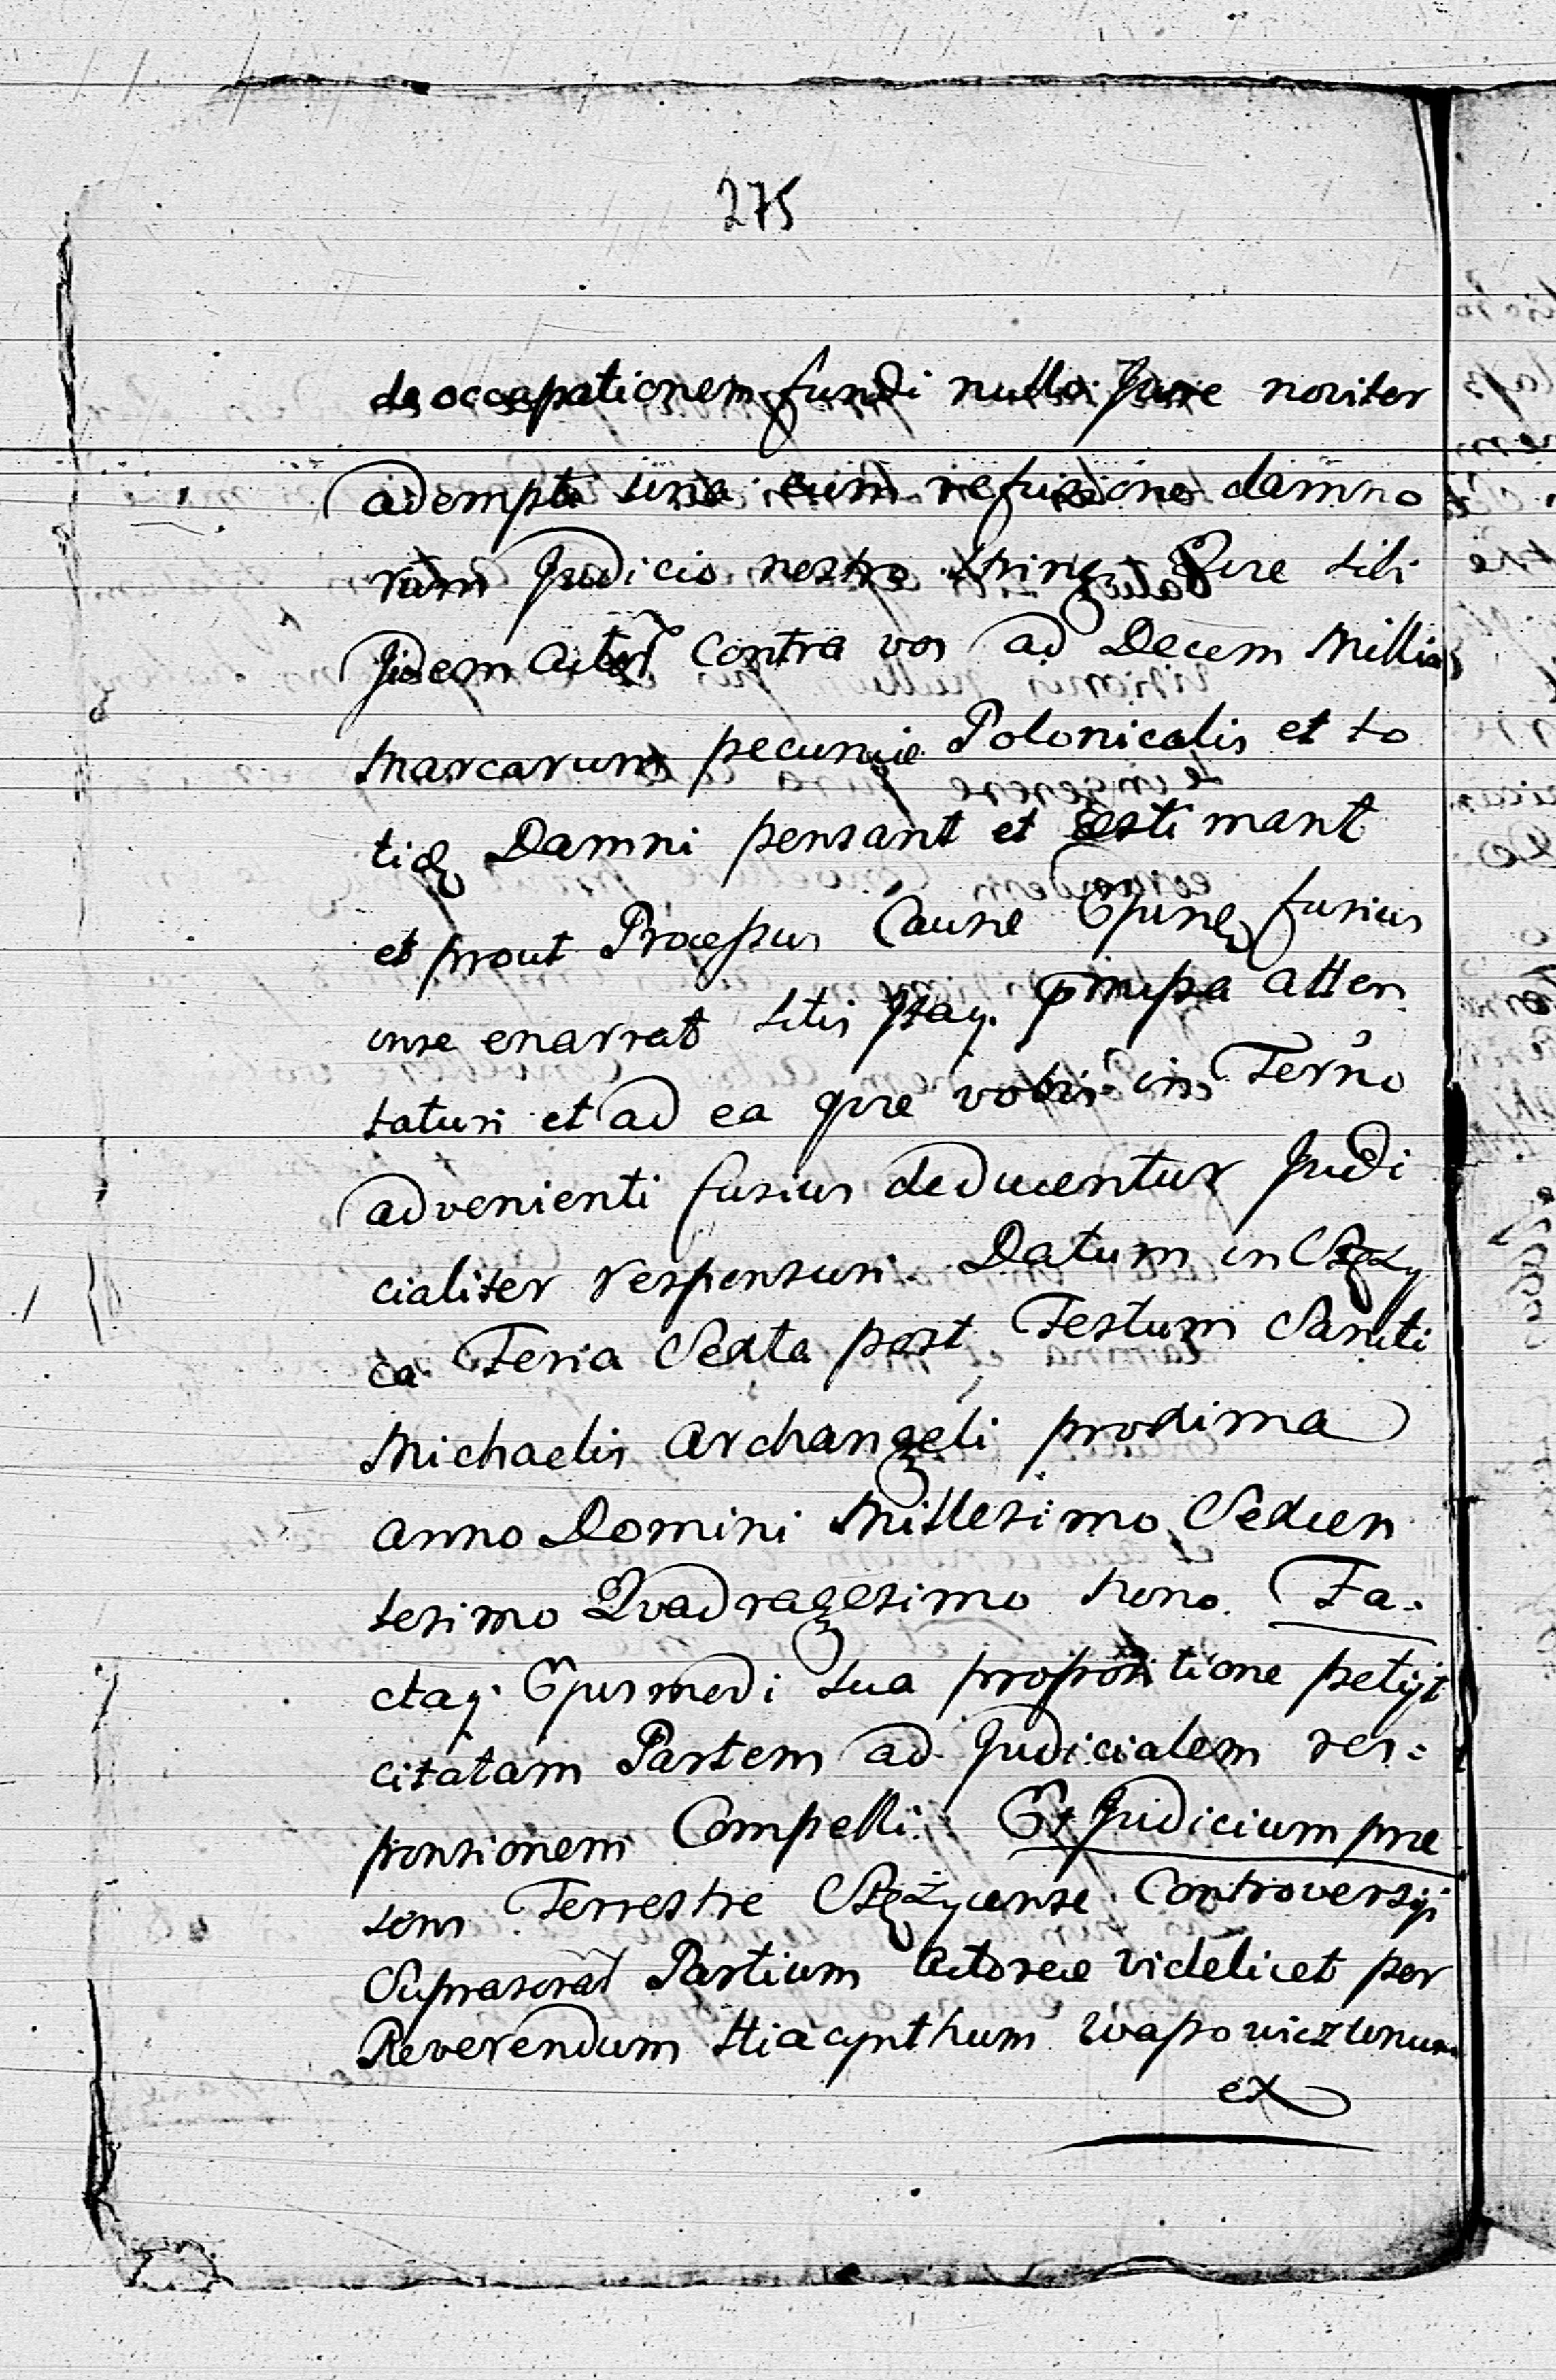 275
de occupationem fundi nullo Jure noviter
adempti una cum refusione damno
rum Judicio nostro Que sibi
Jidem Actores Contra vos ad Decem Millia
Marcarum pecuniæ Polonicalis et to
tidę Damni pensant et Estimant
et prout Processus Causæ fusius
inse enarrat sitis præmissa atten
taturi et ad ea quæ vobis in Ter̃no
advenienti fusius deducentur Judi
cialiter responsuri. Datum in Stęży
ca Feria Sexta post Festum Sancti
Michaelis Archangeli proxima
Anno Domini Millesimo Sexcen
tesimo Quadragesimo Nono. Fa-
ctaq. Ejusmodi sua propositione petijt
citatam Partem ad Judicialem res=
ponsionem Compelli. Et Judicium præ
sens Terrestre Stężycense Controversijs
Suprascrat Partium Actoreæ videlicet per
Reverendum Hiacynthum
ex